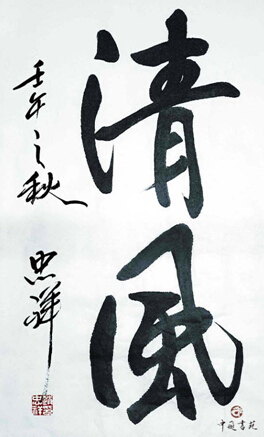 清風
壬午之秋
忠祥
中國書苑